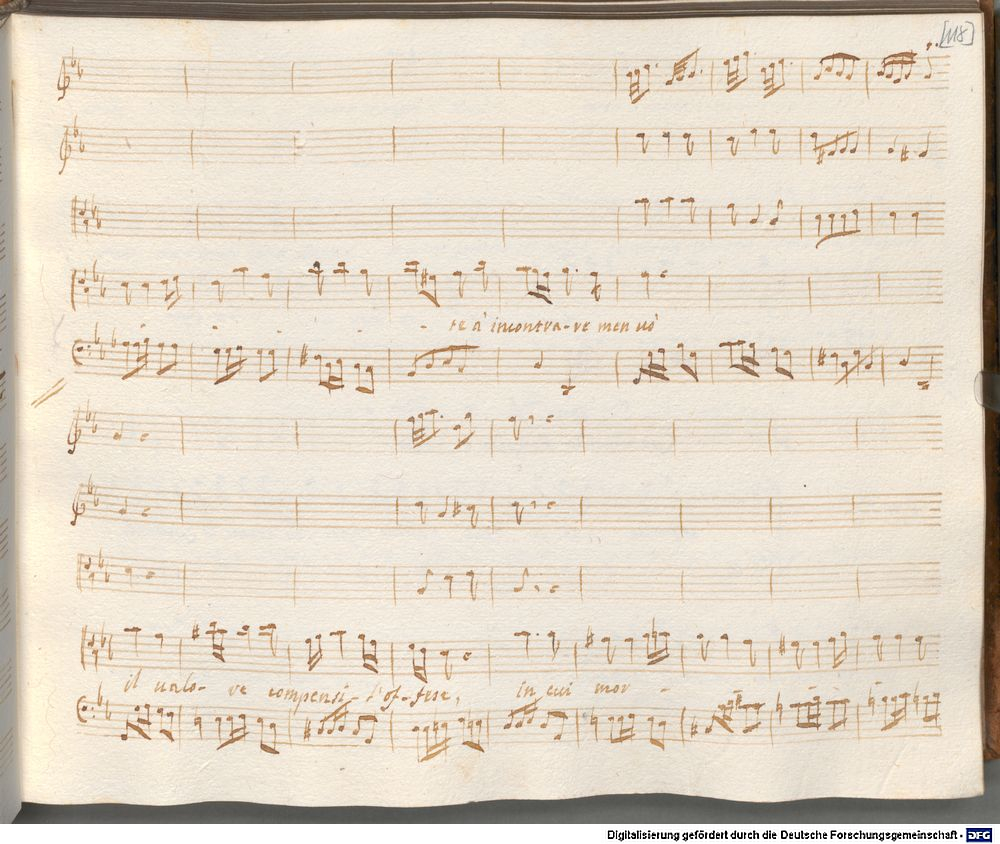 [118]
- te à incontra-re men uò
il ualo- re compensi- l'of-fese, in cui mor -
Digitalisierung gefördert durch die Deutsche Forschungsgemeinschaft - DFG